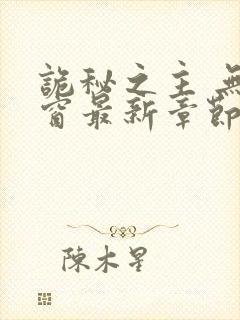 詭秘之主 無
窗最新章節
陳木星